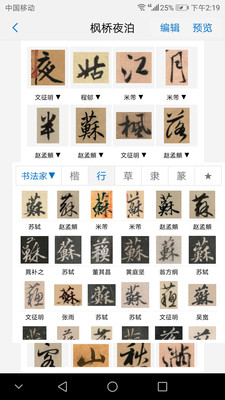 中国移动 25% 下午2:19
枫桥夜泊 编辑 预览
夜 姑 江 月
文征明▼ 程郇▼ 米芾▼ 米芾▼
半 蘇 楓 落
赵孟頫▼ 赵孟頫▼ 文征明▼ 赵孟頫▼
书法家▼ 楷 行 草 隶 篆 ★
蘇 蘇 蘇 蘇 蘇 蘇
苏轼 赵孟頫 米芾 米芾 赵孟頫 赵孟頫
蘇 蘇 蘇 蘇 蘇 蘇
苏轼 董其昌 黄庭坚 翁方纲 苏轼
蘇 蘇 蘇 蘇 蘇 蘇
文征明 张雨 苏轼 苏轼 文征明 吴宽
客 山 秋 满